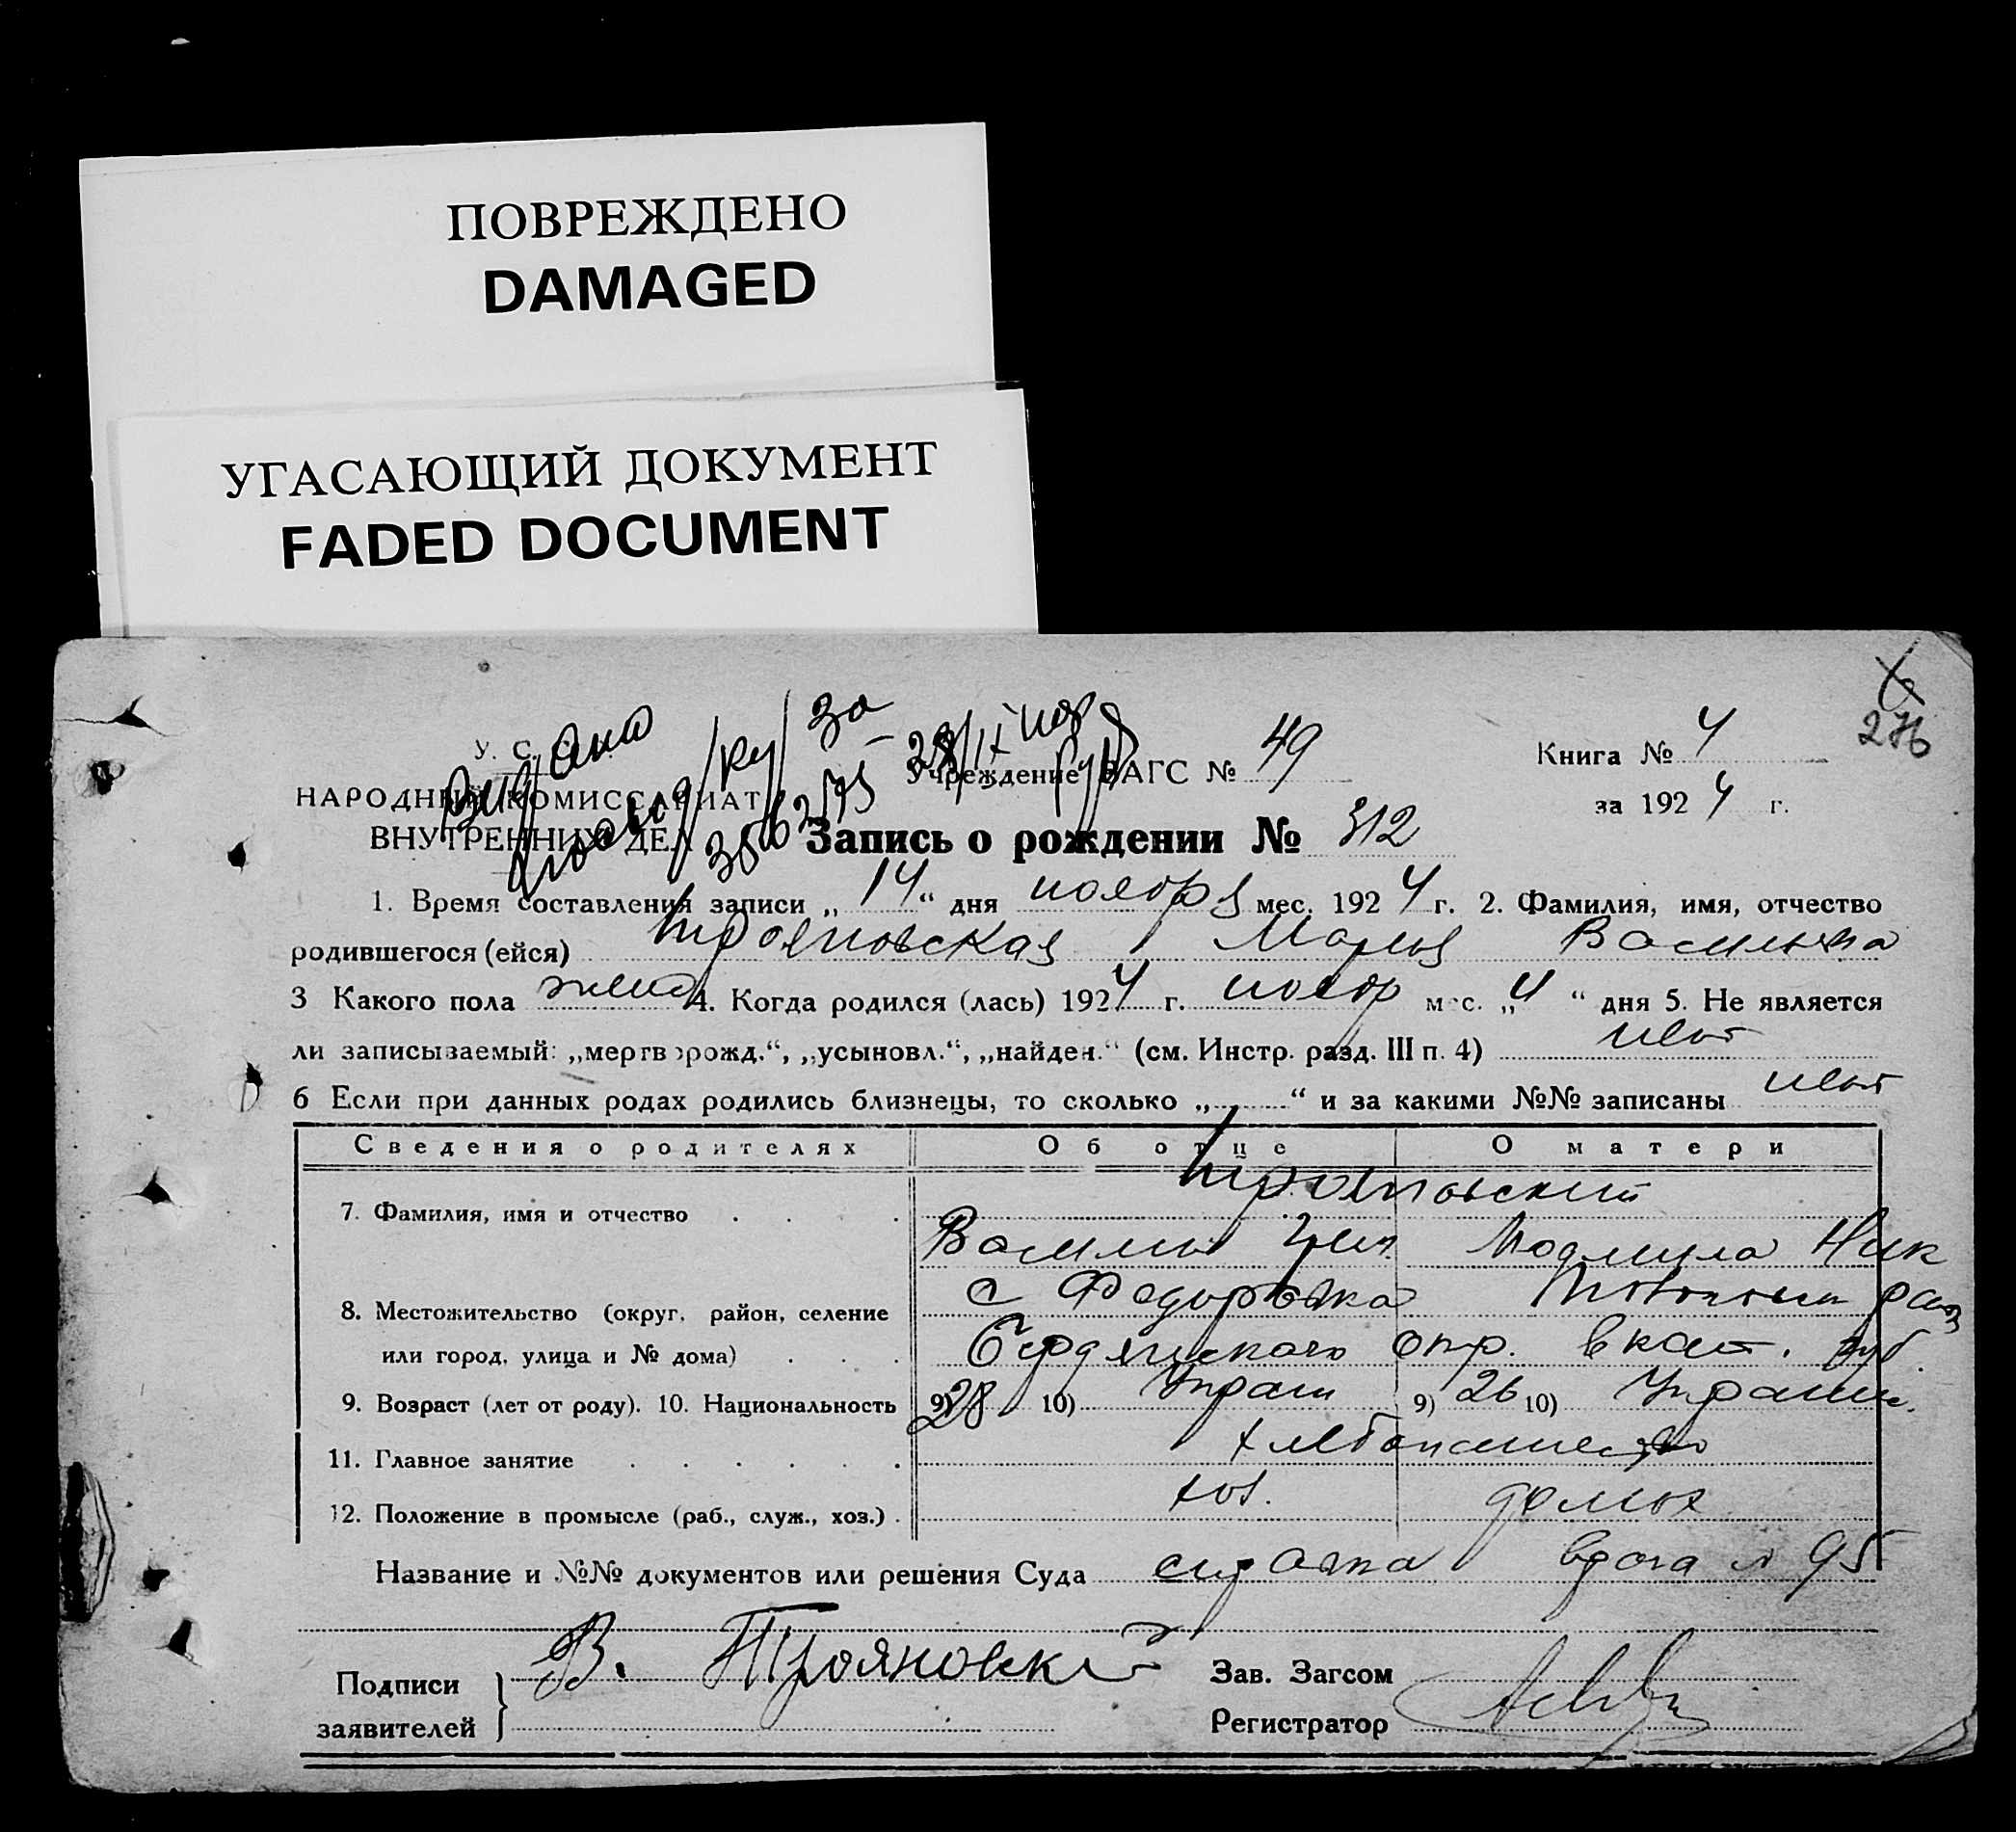 ПОВРЕЖДЕНО
DAMAGED
УГАСАЮЩИЙ ДОКУМЕНТ
FADED DOCUMENT
276
У. С.
НАРОДНЫЙ КОМИССАРИАТ
ВНУТРЕННИХ ДЕЛ
за
Учреждение ЗАГС № 49
Книга № 4
за 1924 г.
Запись о рождении № 312
1. Время составления записи „14“ дня ноября мес. 1924 г. 2. Фамилия, имя, отчество
родившегося (ейся) Трояновская Мария Васильевна
3 Какого пола женс 4. Когда родился (лась) 1924 г. ноябр мес. „4“ дня 5. Не является
ли записываемый: „мертворожд.“, „усыновл.“, „найден.“ (см. Инстр. разд. III п. 4) нет
6 Если при данных родах родились близнецы, то сколько „ “ и за какими №№ записаны нет
Сведения о родителях Об отце О матери
7. Фамилия, имя и отчество Трояновский
Василий Людмила Ник
8. Местожительство (округ, район, селение с Федоровка
или город, улица и № дома) Бердянского окр. Екат. губ.
9. Возраст (лет от роду). 10. Национальность 9) 28 10) Украин 9) 26 10) Украин.
11. Главное занятие хлебопашество
12. Положение в промысле (раб., служ., хоз.) хоз. домох
Название и №№ документов или решения Суда № 95
Подписи заявителей В. Трояновский
Зав. Загсом
Регистратор